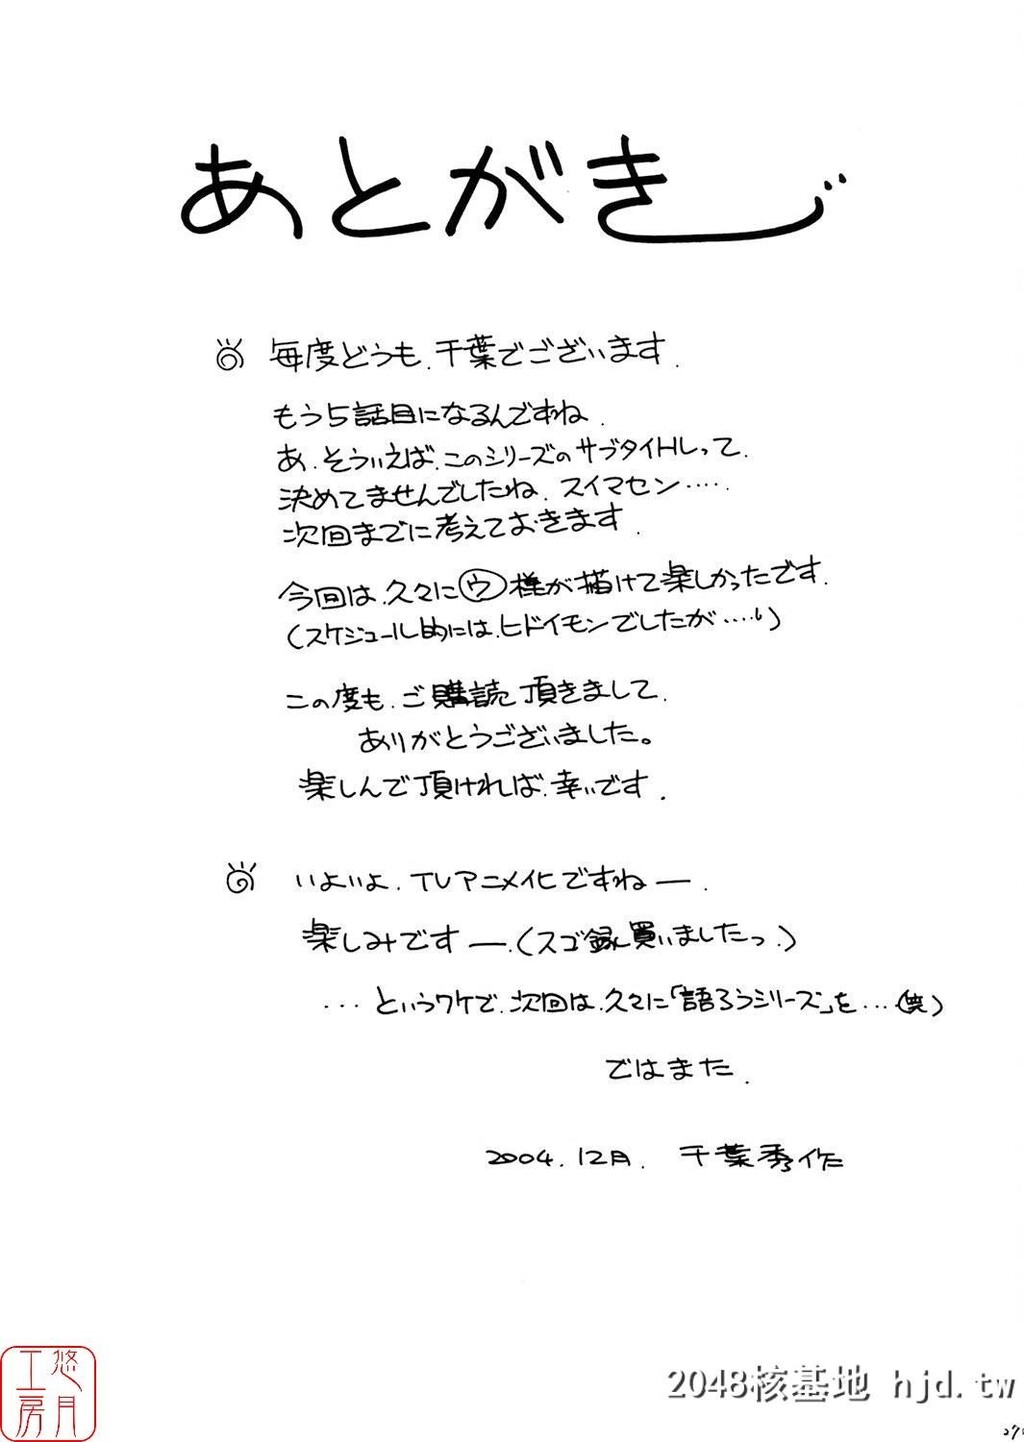 あとがき
毎度どうも、千葉でございます.
もう5話目になるんですね.
あ、そういえば、このシリーズのサブタイトルって、
決めてませんでしたね、スイマセン‥‥.
次回までに考えておきます.
今回は、久々にウ様が描けて楽しかったです.
(スケジュール的には、ヒドイモンでしたが‥‥)
この度も、ご購読頂きまして、
ありがとうございました。
楽しんで頂ければ、幸いです.
いよいよ、TVアニメ化ですねー.
楽しみですー.(スゴ録、買いましたっ!)
…というワケで、次回は、久々に「語ろうシリーズ」を…(笑)
ではまた.
2004.12月. 千葉秀作
悠月工房
2048核基地 hjd.tw